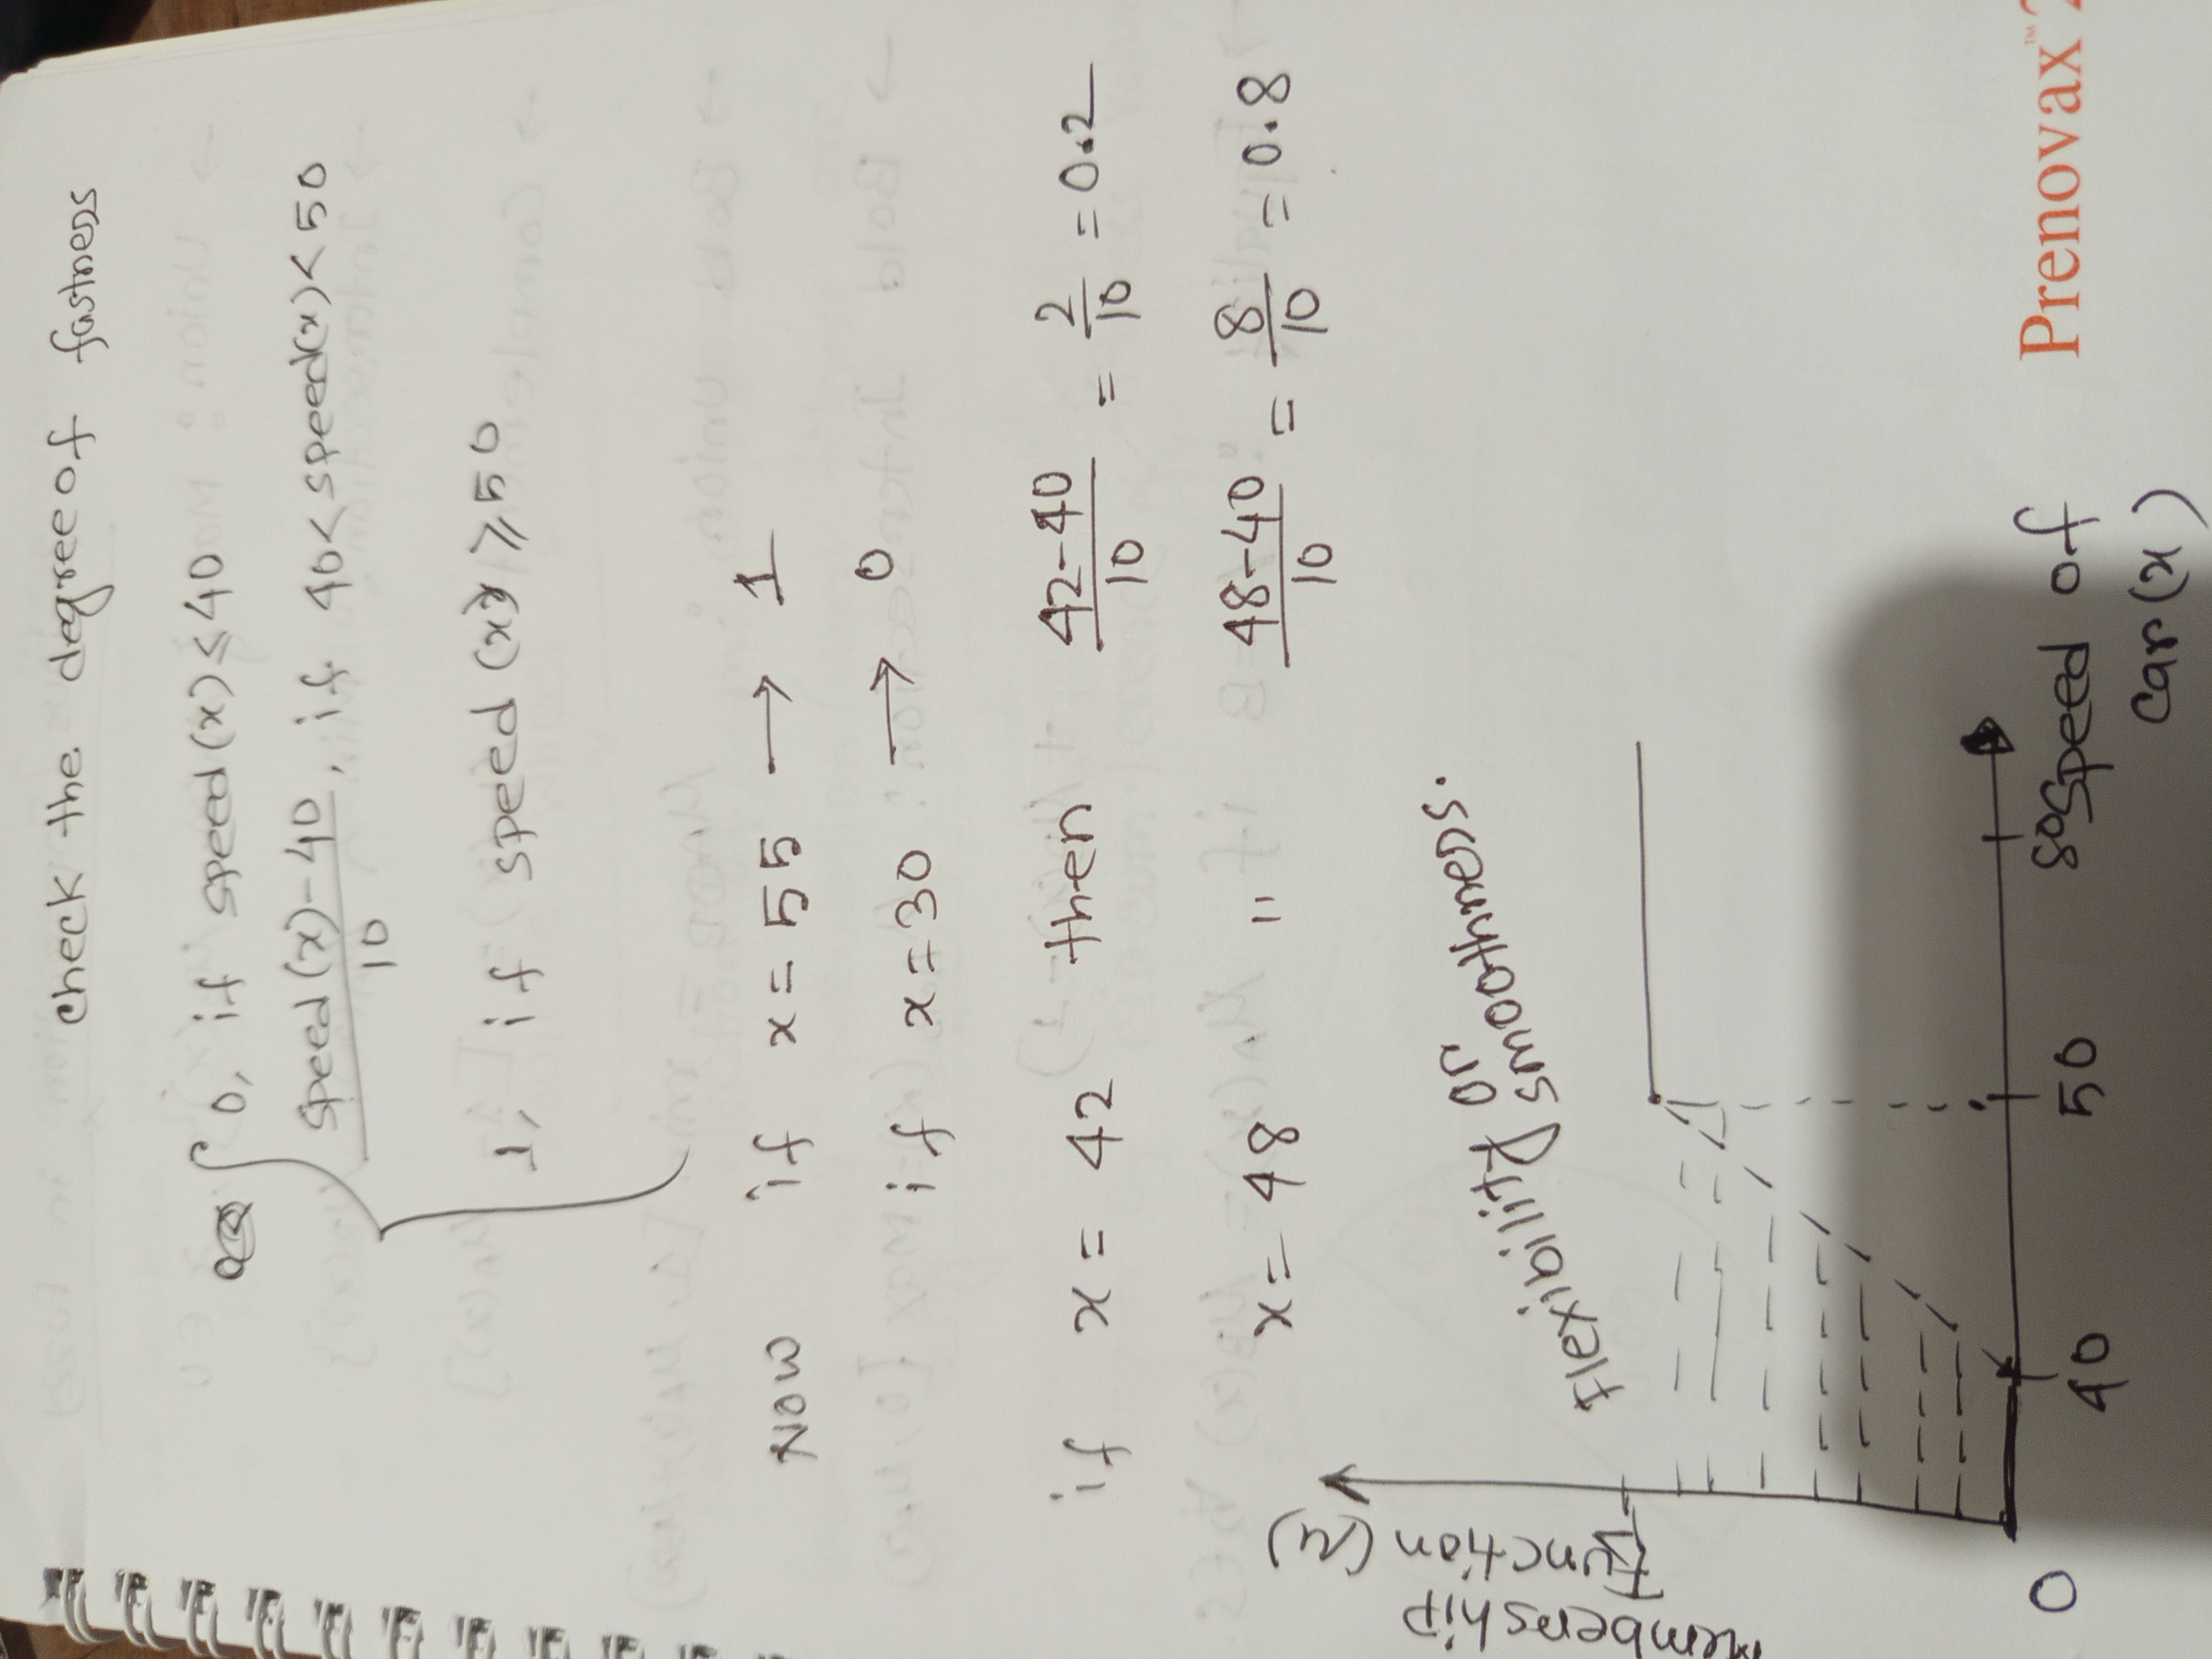 check the degree of fastness
0, if speed (x) ≤ 40
speed (x) - 40 / 10, if 40 < speed(x) < 50
1, if speed (x) ≥ 50
Now if x = 55 → 1
if x = 30 → 0
if x = 42 then 42-40 / 10 = 2/10 = 0.2
x = 48 " 48-40 / 10 = 8/10 = 0.8
Membership
Function (μ)
Flexibility or
smoothness.
1
0
40
50
80
Speed of
Car (x)
Prenovax™ 2